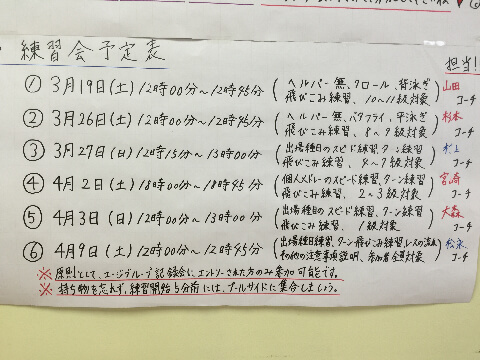 練習会予定表
担当!
① 3月19日(土) 12時00分～12時45分 (ヘルパー無、クロール、背泳ぎ 山田
飛びこみ練習、10～11級対象) コーチ
② 3月26日(土) 12時00分～12時45分 (ヘルパー無、バタフライ、平泳ぎ 杉本
飛びこみ練習、8～9級対象) コーチ
③ 3月27日(日) 12時15分～13時00分 (出場種目のスピード練習、ターン練習 村上
飛びこみ練習、4～7級対象) コーチ
④ 4月2日(土) 18時00分～18時45分 (個人メドレーのスピード練習、ターン練習 宮崎
飛びこみ練習、2～3級対象) コーチ
⑤ 4月3日(日) 12時00分～13時00分 (出場種目のスピード練習、ターン練習 大森
飛びこみ練習、1級対象) コーチ
⑥ 4月9日(土) 12時00分～12時45分 (出場種目練習、ターン飛びこみ練習、レースの流れ
その他の注意事項説明、参加者全員対象) コーチ
※ 原則として、エージグループ記録会にエントリーされた方のみ参加可能です。
※ 持ち物を忘れず、練習開始5分前には、プールサイドに集合しましょう。